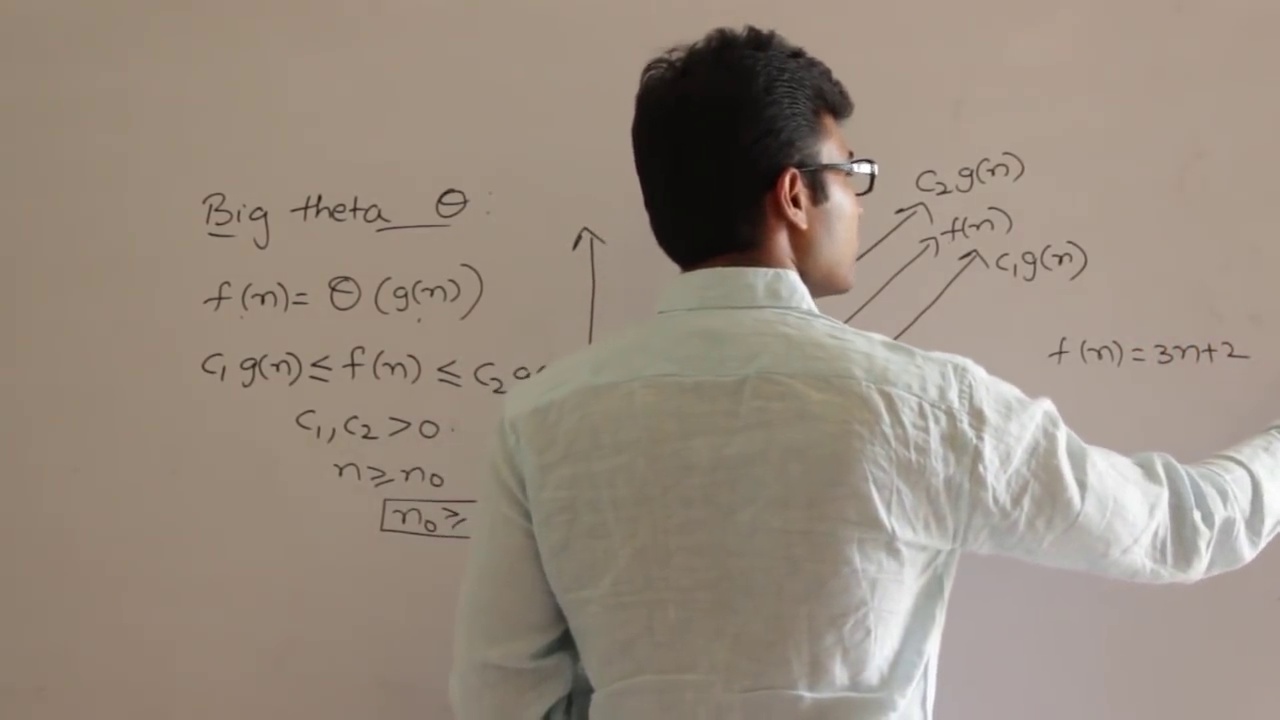 Big theta θ :
f(n) = θ (g(n))
c₁ g(n) ≤ f(n) ≤ c₂
c₁, c₂ > 0
n ≥ n₀
n₀ ≥
c₂ g(n)
f(n)
c₁ g(n)
f(n) = 3n+2